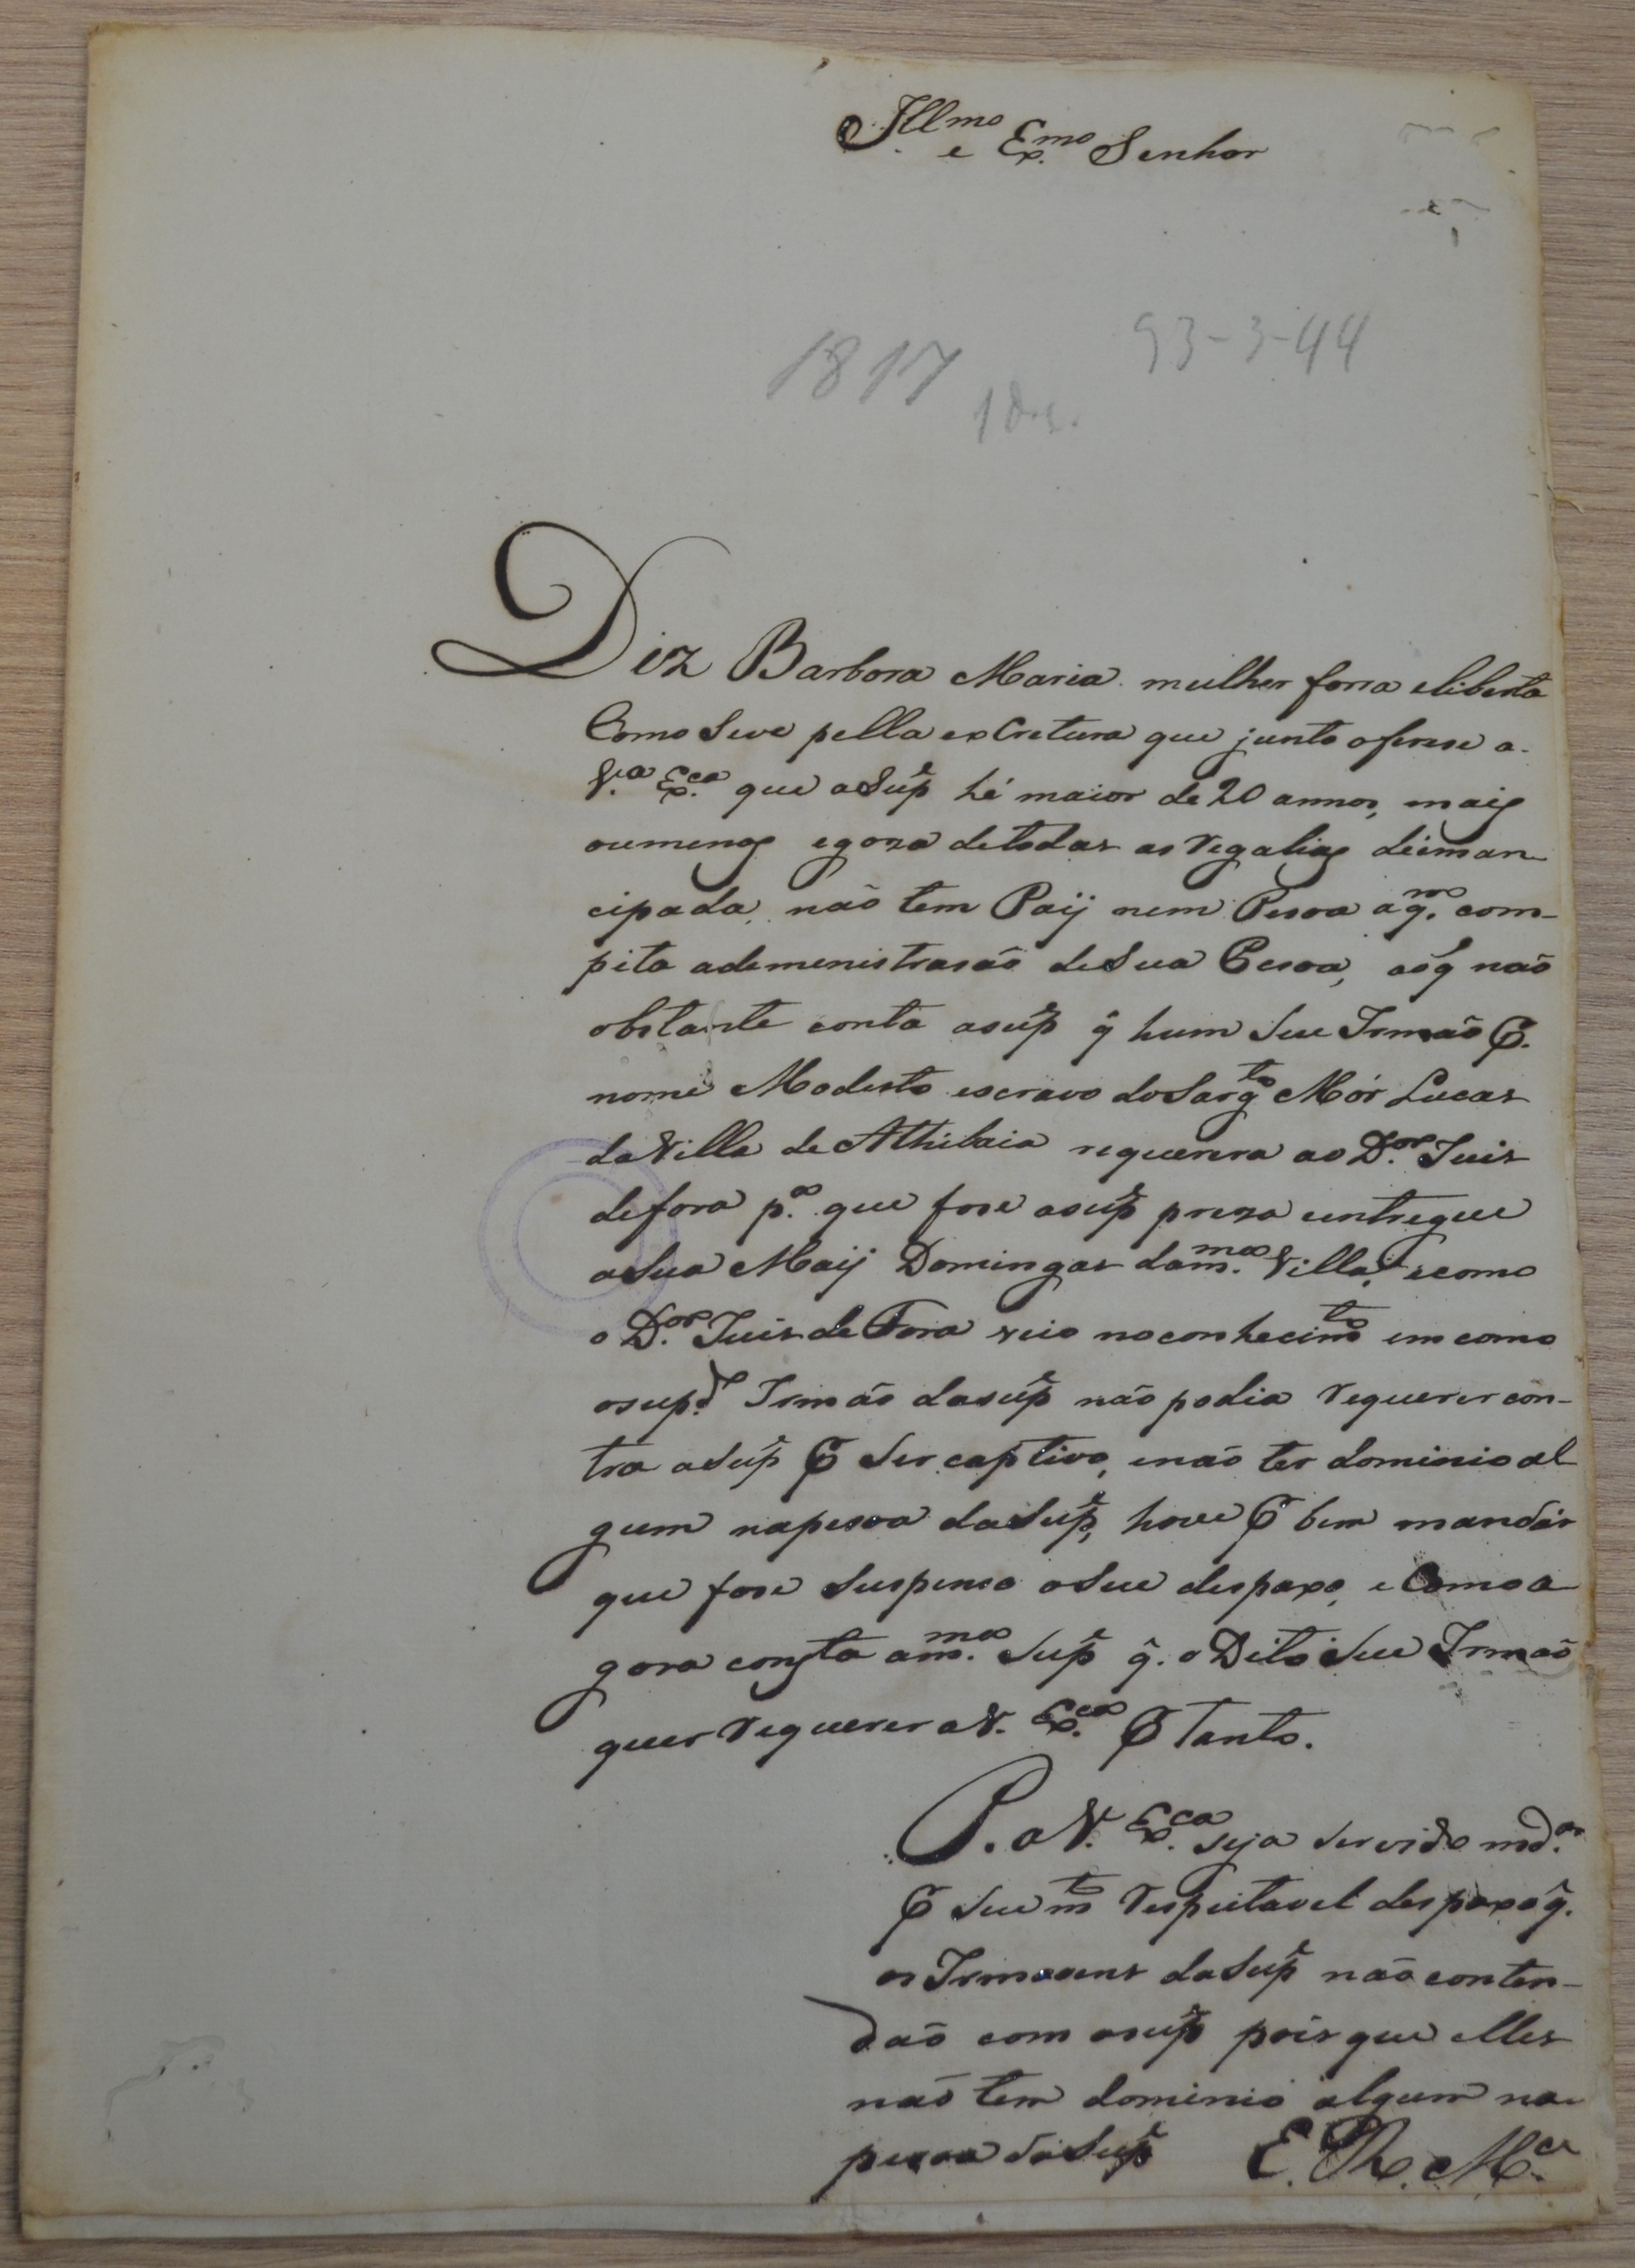 Illmo e Exmo. Senhor
1817
93-3-44
1 doc.
Diz Barbora Maria mulher forra eliberta
Como Seve pella exCretura que junto oferese a
V.a Ex.ca que aSup.e hé maior de 20 annos, mais
oumenos egoza detodas as regalias deiman-
cipada, não tem Paij nem Pesoa aq.m com-
pita ademenistrasão deSua Pesoa, aoq não
obstante conta aSup.e q̃ hum Seu Irmão P.
nome Modesto escravo doSargto Mór Lucas
daVilla de Athibaia requerera ao D.or Juis
defora p.a que fose aSup.e preza eentregue
aSua Maij Domingas dam.ma Villa, ecomo
o D.or Juis de Fora veio noconhecimto em como
osup.do Irmão daSup.e não podia requerer con-
tra aSup.e P Ser captivo, enão ter dominio al
gum napesoa daSup.e, houe P bem mandar
que fose Suspenso oSeu despaxo, e Como a
gora consta am.ma Sup.e q̃. o Dito Seu Irmão
quer requerer aV. Ex.ca P Tanto.
P. aV. Ex.ca seja Servido md.ar
P Seu mto respeitavel despaxo q̃.
os Irmaons daSup.e não conten-
dão com aSup.e pois que elles
não tem dominio algum na
pesoa daSup.e E. R. M.ce